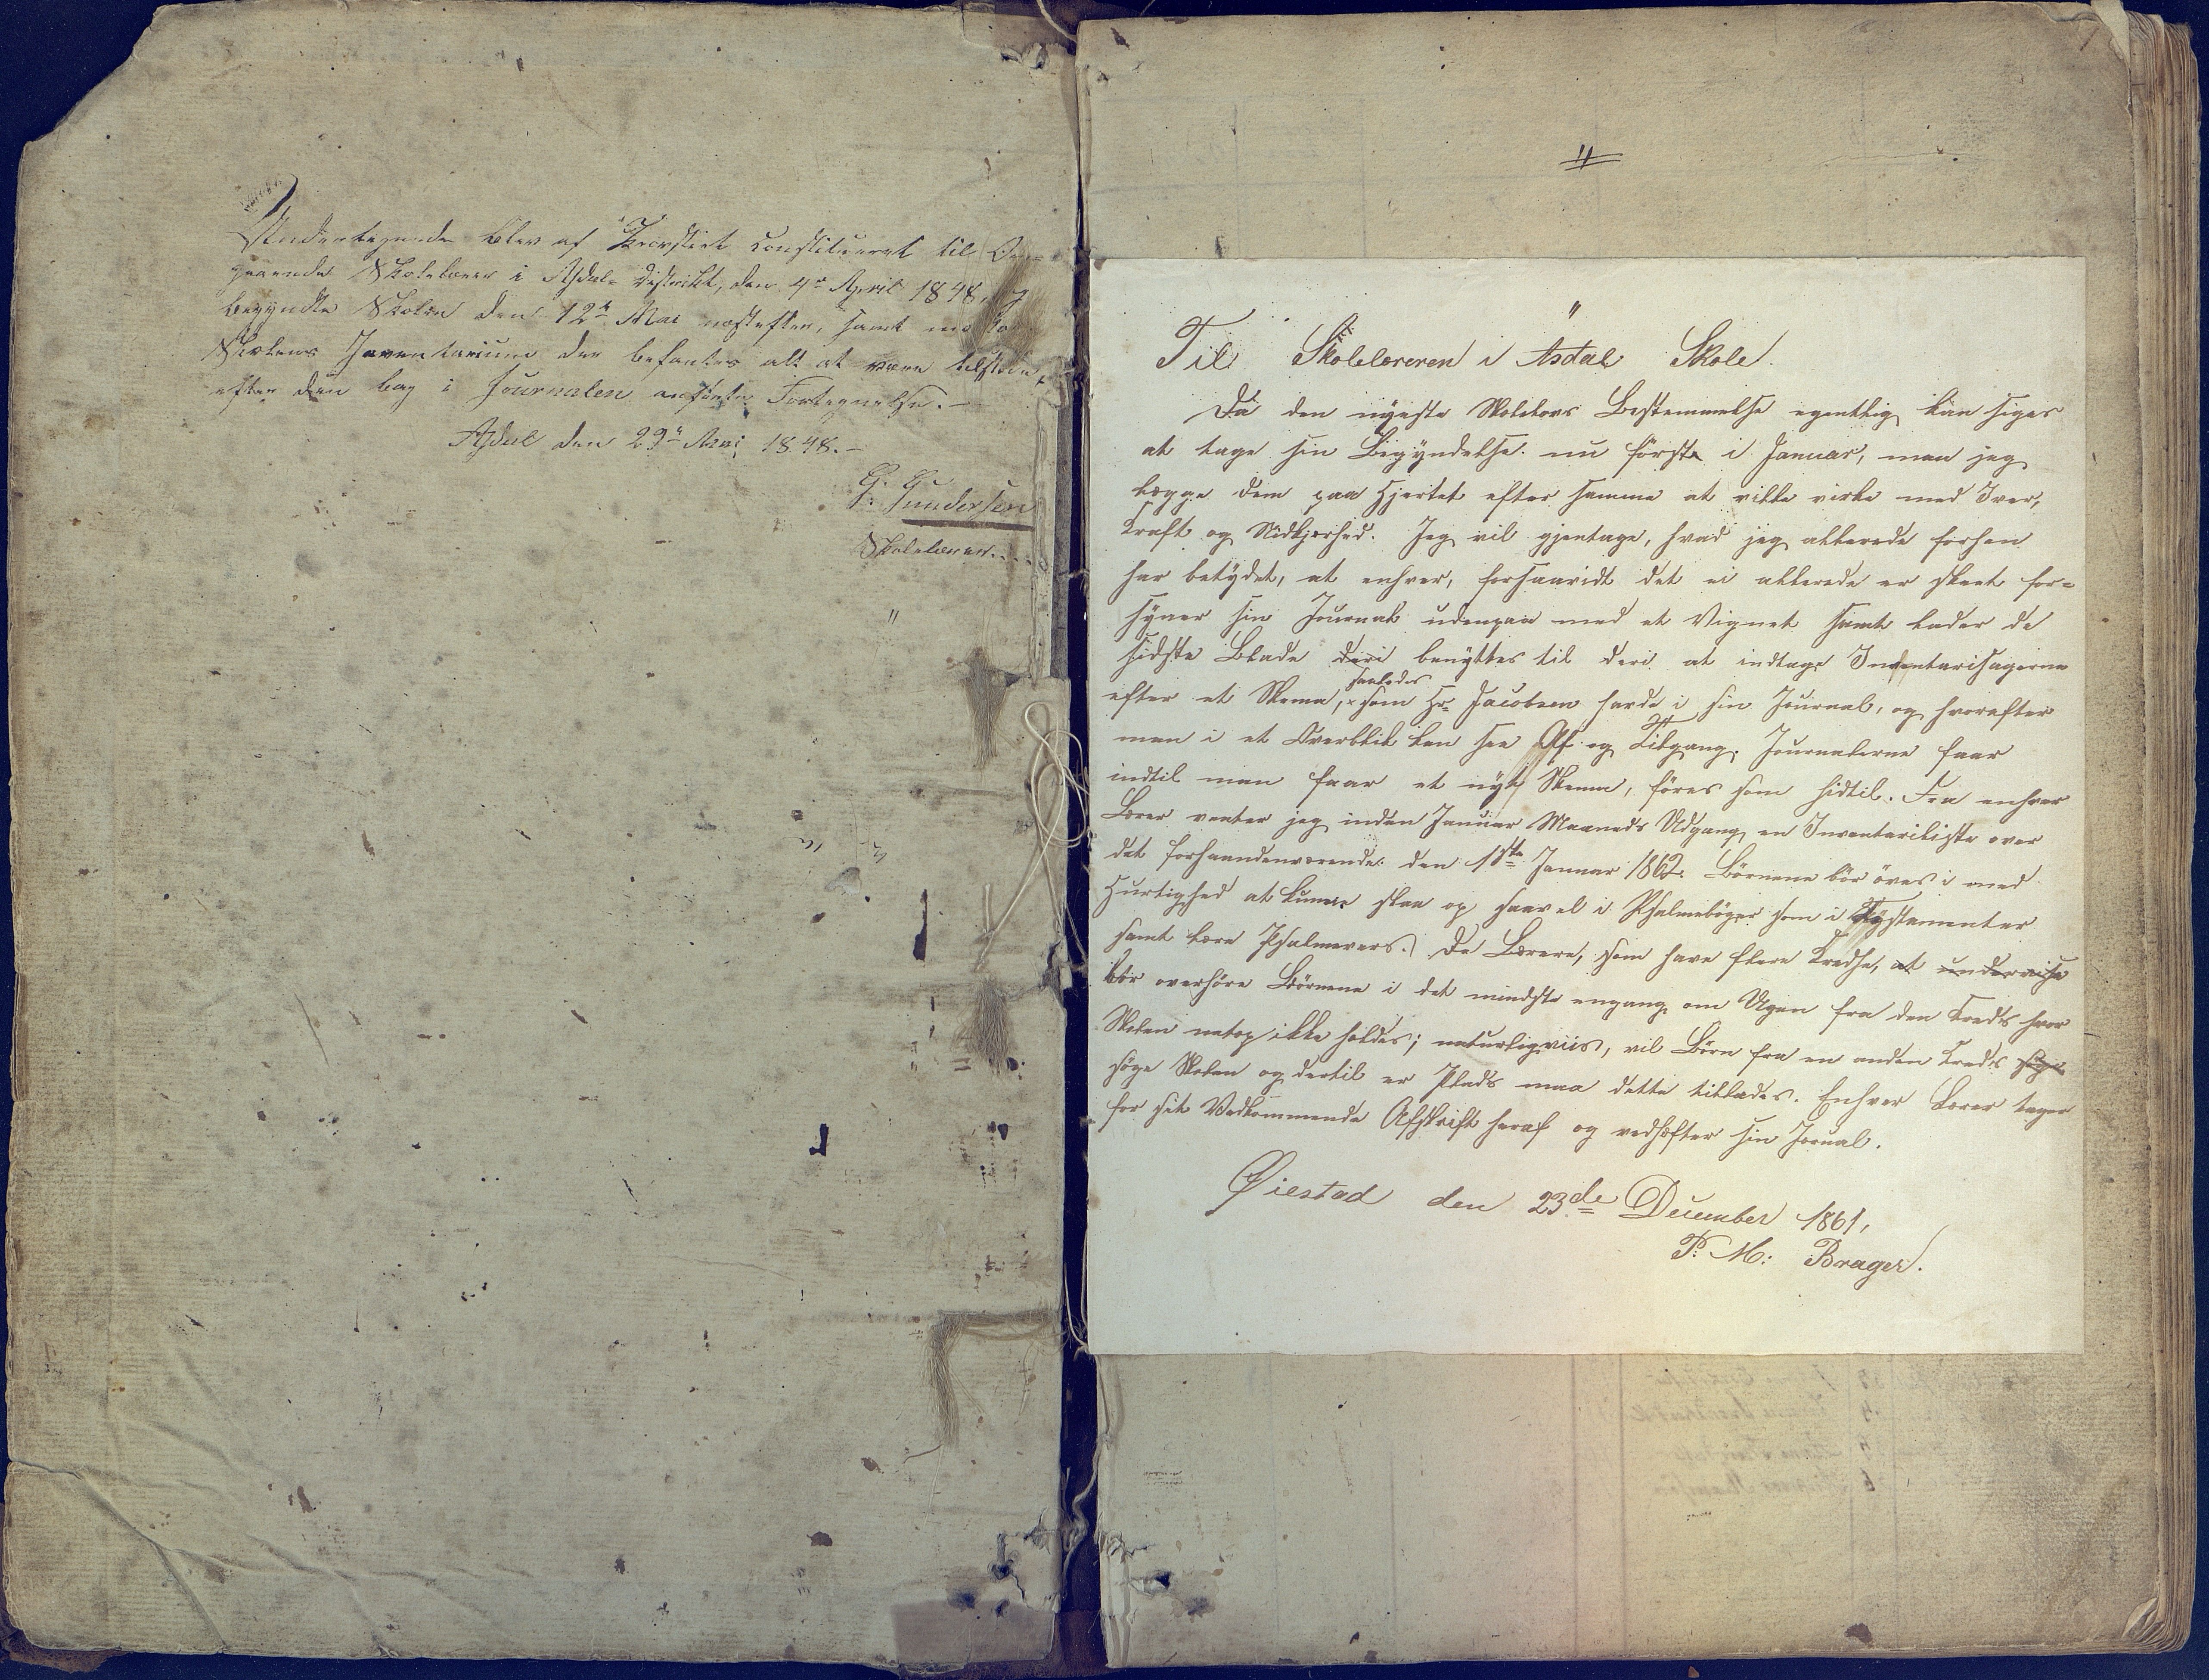 Undertegnede blev af Provstiet constitueret til Om-
gaaende Skolelærer i Asdals District, den 4de April 1848,
begyndte Skolen den 12te Mai næstefter, samt modtog
Skolens Inventarium der befantes alt at være tilstede,
efter den bag i Journalen anførte Fortegnelse.-
Asdal den 29de Mai 1848.-
G. Gundersen
Skolelærer.
Til Skolelæreren i Asdal Skole.
Da den nyeste Skolelovs Bestemmelse egentlig kan siges
at tage sin Begyndelse nu förste i Januar, maa jeg
lægge dem paa Hjertet efter samme at ville virke med Iver,
Kraft og Nidkjærhed. Jeg vil gjentage, hvad jeg allerede forhen
har betydet, at enhver, forsaavidt det ei allerede er skeet for-
syner sin Journal udenpaa med et Vignet samt lader de
sidste Blade deri benyttes til deri at indtage Inventarisagerne
efter et Skema, saaledes som Hr Jacobsen havde i sin Journal, og hvorefter
man i et Overblik kan see Af og Tilgang. Journalerne faar
indtil man faar et nyt Skema, föres som hidtil. Fra enhver
Lærer venter jeg inden Januar Maaneds Udgang en Inventarieliste over
det forhaandenværende den 1ste Januar 1862. Börnene bör öves i med
Hurtighed at kunne slaa op saavel i Psalmebøger som i Testamenter
samt lære Psalmevers. De Lærere, som have flere Kredse, at undervise
bör overhöre Börnene i det mindste engang om Ugen fra den Kreds hvor
Skolen netop ikke holdes; naturligviis, vil Börn fra en anden Kreds søge
søge Skolen og dertil er Plads maa dette tillades. Enhver Lærer tager
for sit Vedkommende Afskrift heraf og vedhefter sin Jornal.
Øiestad den 23de December 1861,
P. M: Brager.